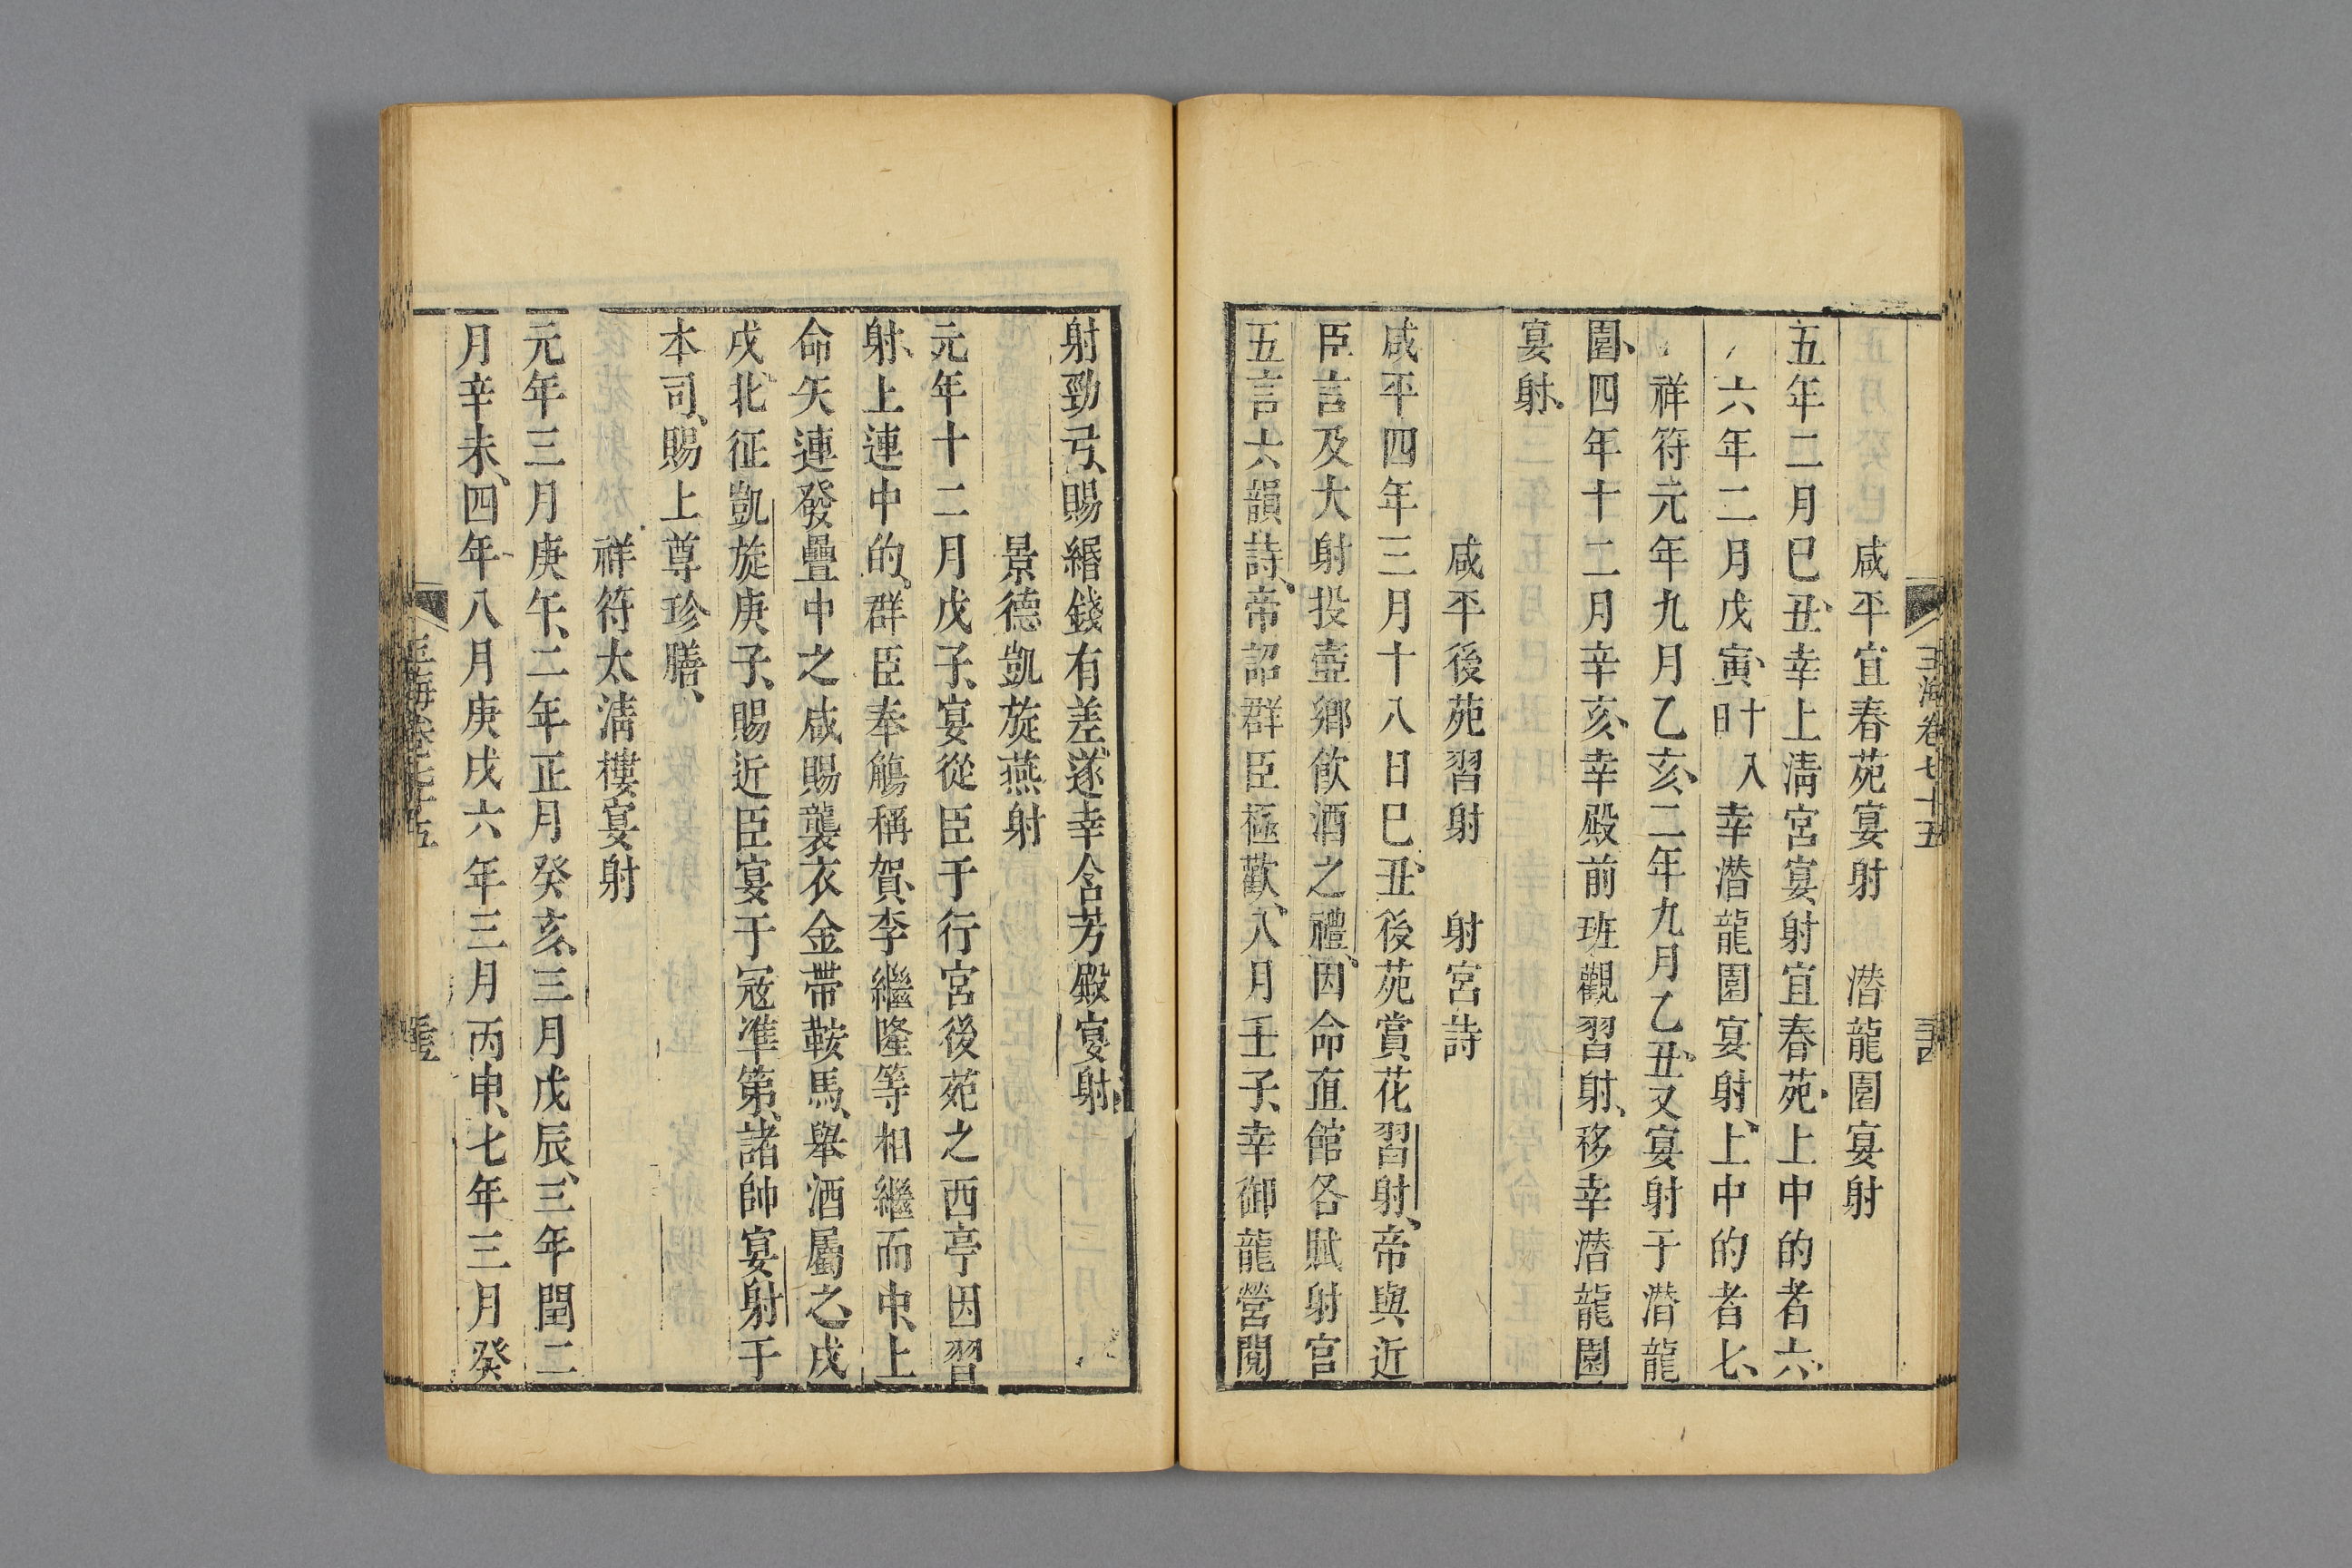 玉海卷七十五
咸平宜春苑宴射　潛龍園宴射
五年二月己丑幸上清宮宴射宜春苑上中的者六
六年二月戊寅十八日幸潛龍園宴射上中的者七
祥符元年九月乙亥二年九月乙丑又宴射于潛龍
園四年十二月辛亥幸殿前班觀習射移幸潛龍園
宴射
咸平後苑習射　射宮詩
咸平四年三月十八日己丑後苑賞花習射帝與近
臣言及大射投壺鄉飲酒之禮因命直館各賦射宮
五言六韻詩帝詔群臣極歡八月壬子幸御龍營閱
射勁弓賜緡錢有差遂幸含芳殿宴射
景德凱旋燕射
元年十二月戊子宴從臣于行宮後苑之西亭因習
射上連中的群臣奉觴稱賀李繼隆等相繼而中上
命矢連發疊中之咸賜襲衣金帶鞍馬舉酒屬之戊
戌北征凱旋庚子賜近臣宴于寇準第諸帥宴射于
本司賜上尊珍膳
祥符太清樓宴射
元年三月庚午二年正月癸亥三月戊辰三年閏二
月辛未四年八月庚戌六年三月丙申七年三月癸
玉海卷七十五